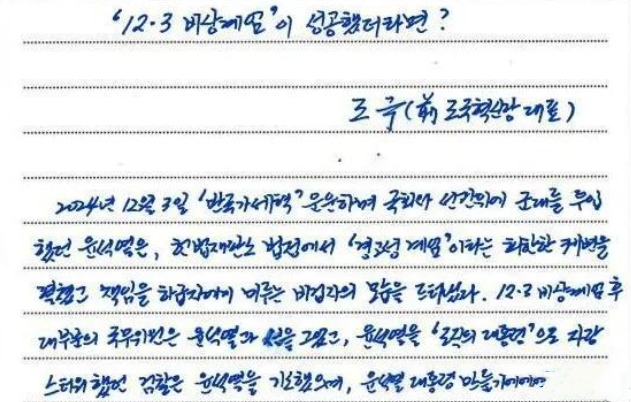 '12·3 비상계엄'이 성공했더라면?
조 국 (前 조국혁신당 대표)
2024년 12월 3일 '반국가세력' 운운하며 국회와 선관위에 군대를 투입
했던 윤석열은, 헌법재판소 법정에서 '경고성 계엄'이라는 희한한 궤변을
펼쳤고 책임을 하급자에게 미루는 비겁자의 모습을 드러냈다. 12·3 비상계엄 후
대부분의 국무위원은 윤석열과 선을 그었고, 윤석열을 '조직의 대통령'으로 자랑
스러워 했던 검찰은 윤석열을 기소했으며, 윤석열 대통령 만들기에